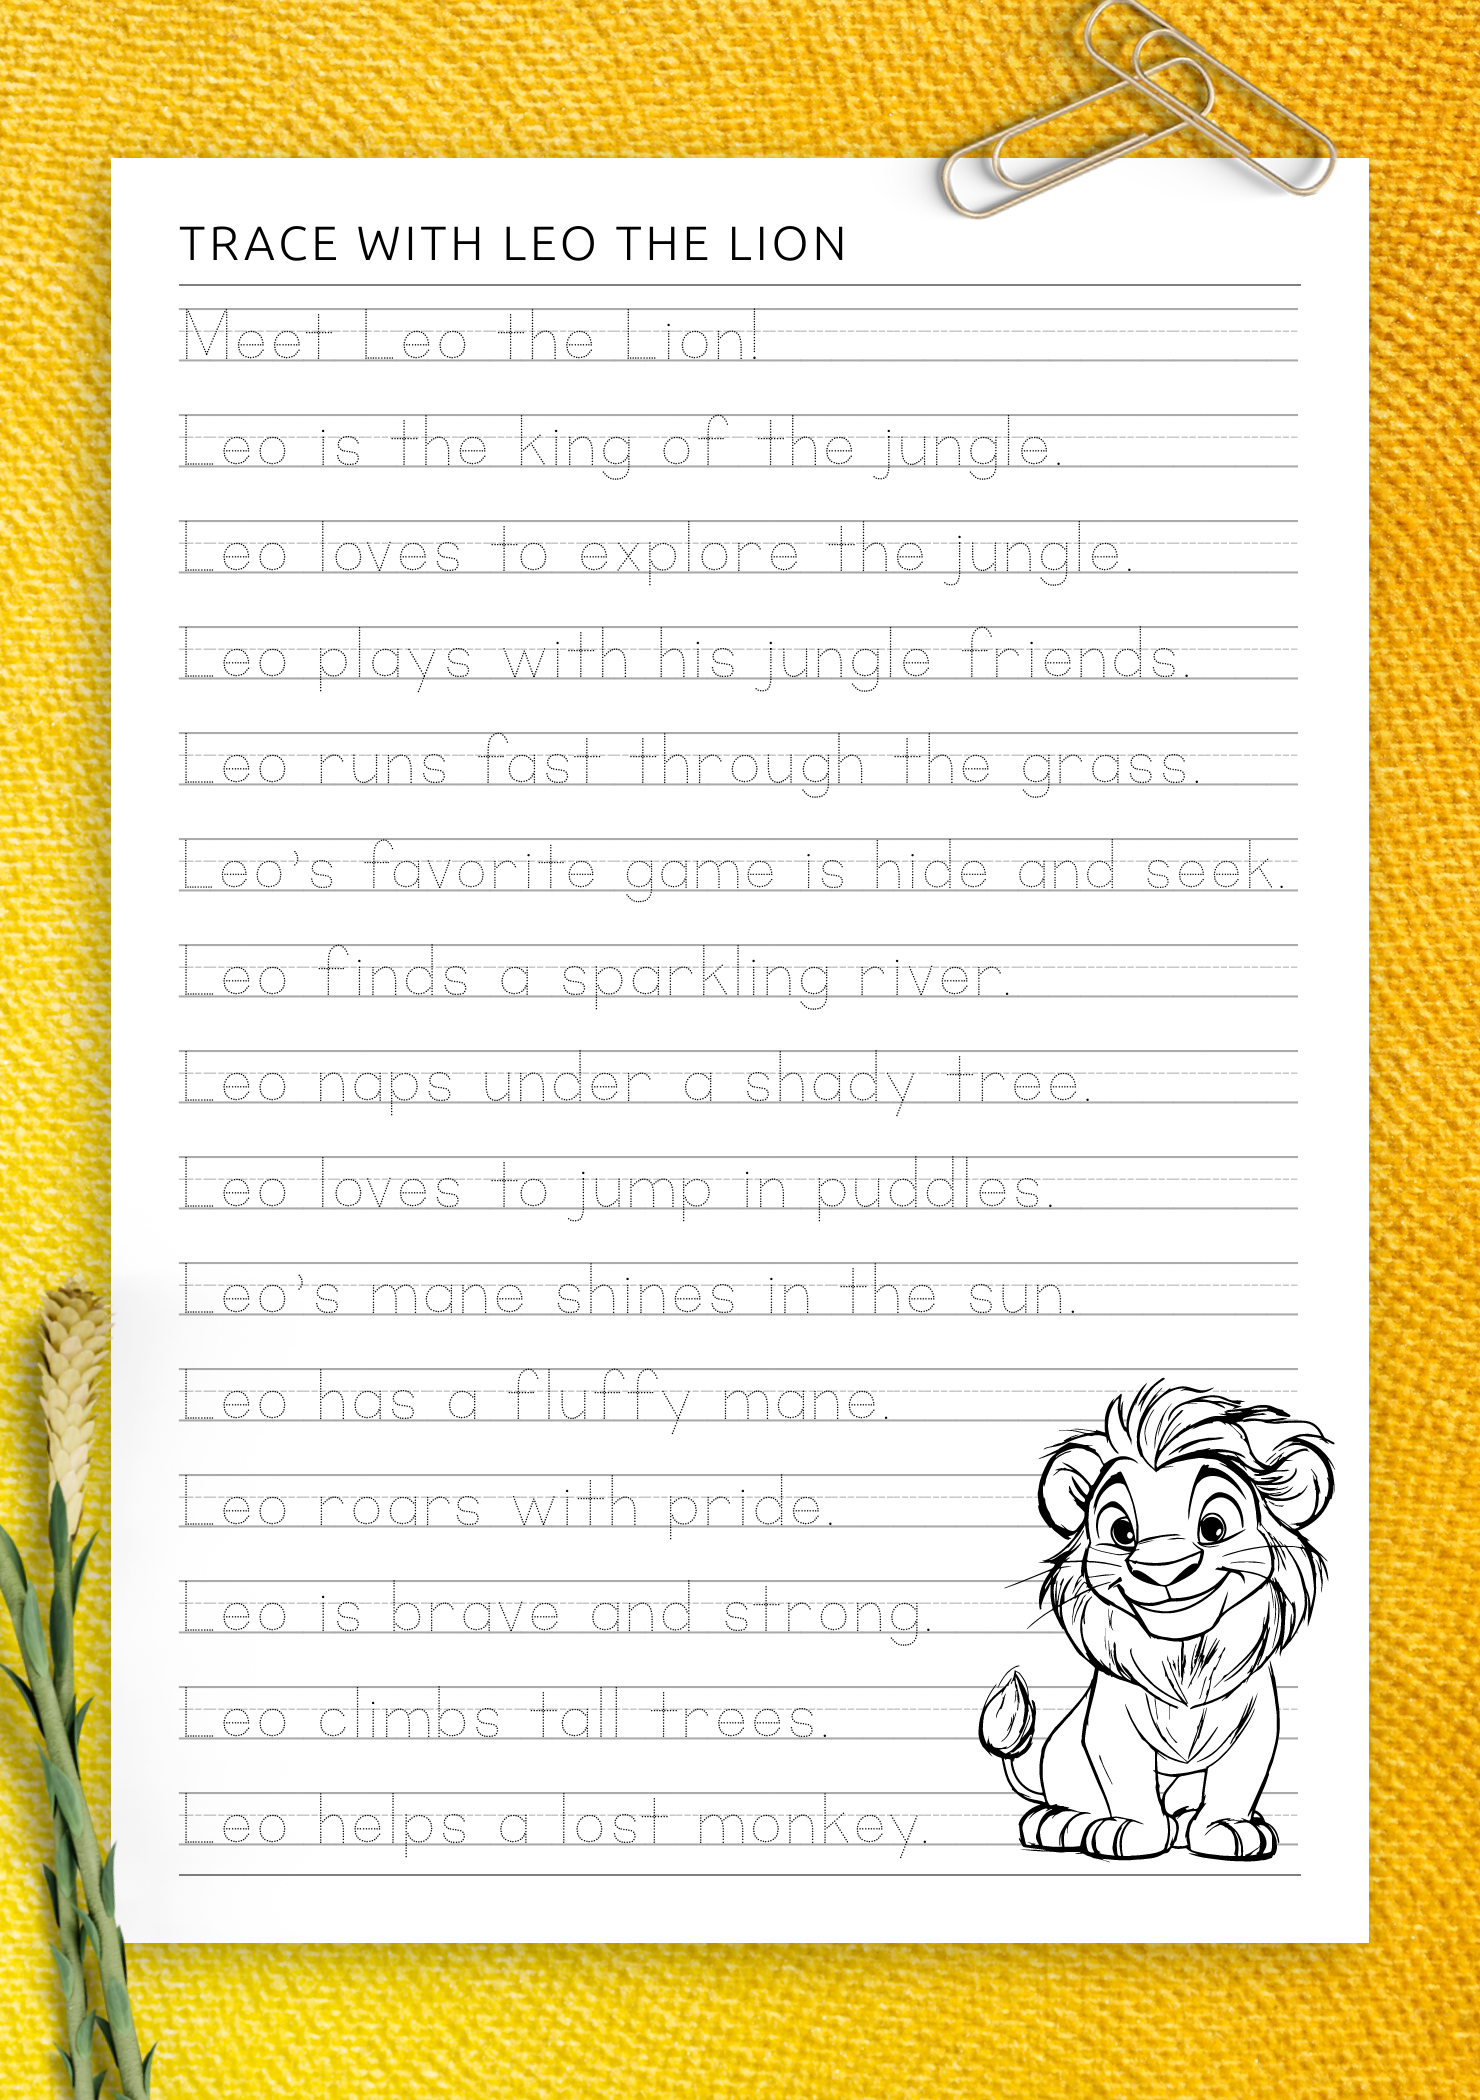 TRACE WITH LEO THE LION
Meet Leo the Lion!
Leo is the king of the jungle.
Leo loves to explore the jungle.
Leo plays with his jungle friends.
Leo runs fast through the grass.
Leo's favorite game is hide and seek.
Leo finds a sparkling river.
Leo naps under a shady tree.
Leo loves to jump in puddles.
Leo's mane shines in the sun.
Leo has a fluffy mane.
Leo roars with pride.
Leo is brave and strong.
Leo climbs tall trees.
Leo helps a lost monkey.